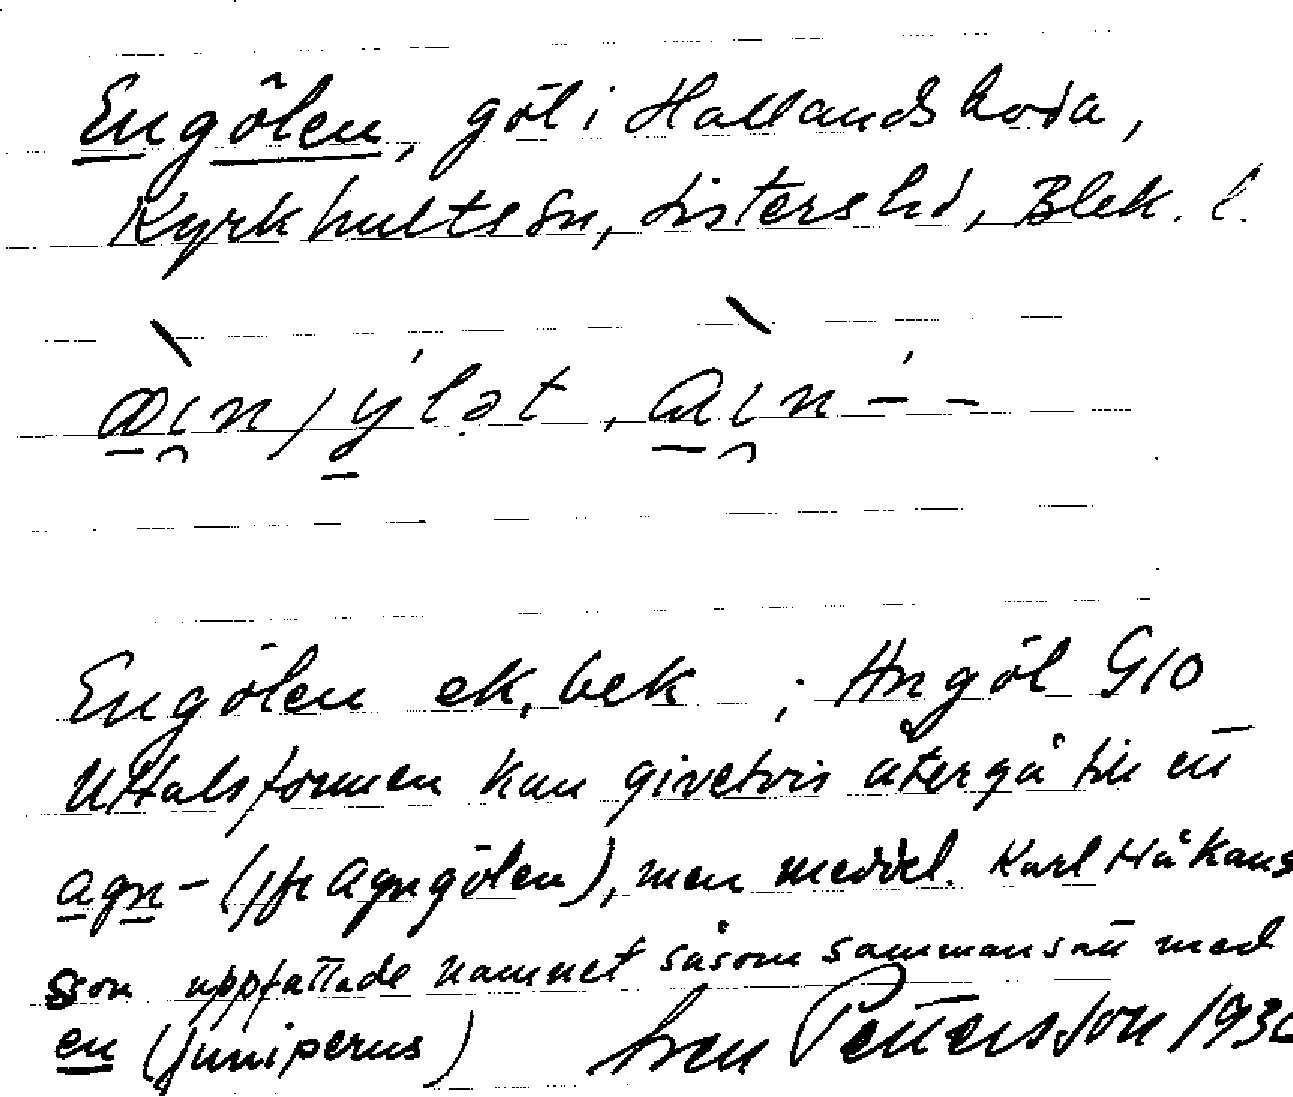 Engölen, göl i Hallandsboda,
Kyrkhults sn, Listers hd, Blek. l.
Engölen ek, bek ; Angöl G10
Uttalsformen kan givetvis återgå till ett
agn- (jfr Agngölen), men meddel. Karl Håkans
sson uppfattade namnet såsom sammansatt med
en (juniperus) Sven Pettersson 193